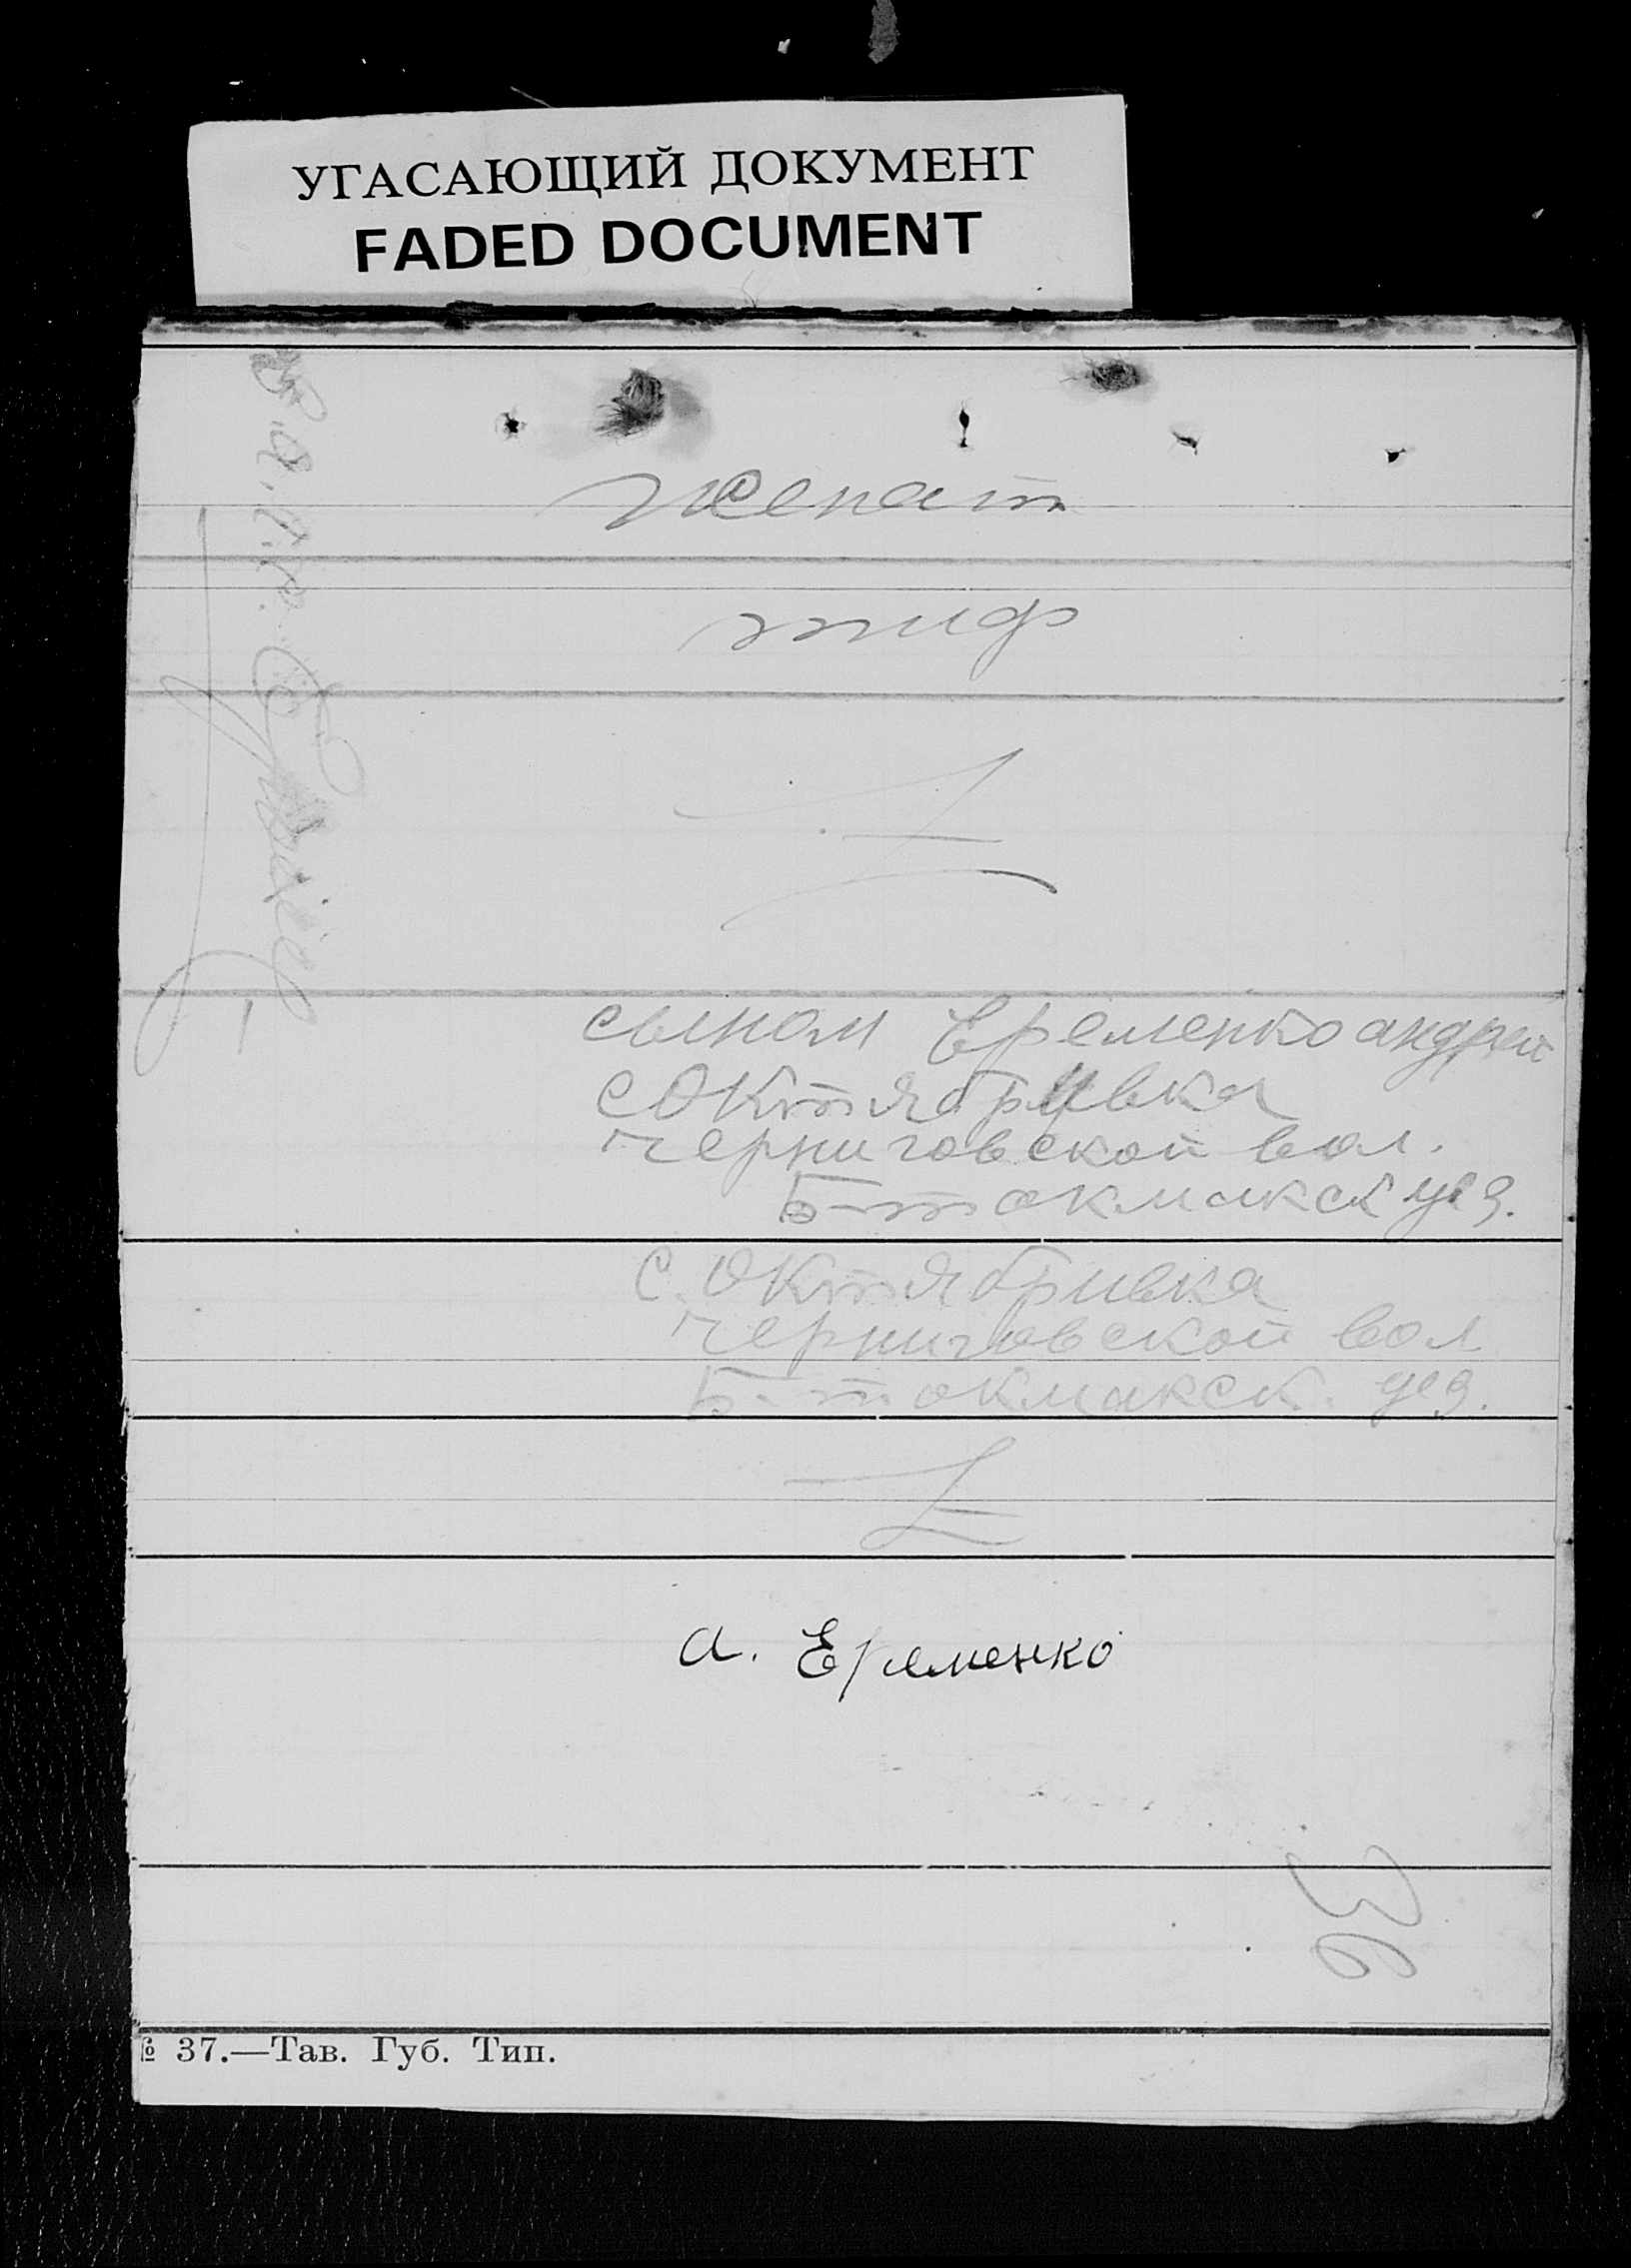 УГАСАЮЩИЙ ДОКУМЕНТ
FADED DOCUMENT
женат
тиф
сыном Еременко андрей
с Октябривка
черниговской вол.
Б-токмакск уез.
с. Октябривка
черниговской вол
Б-токмакск. уез.
а. Еременко
36
№ 37.—Тав. Губ. Тип.